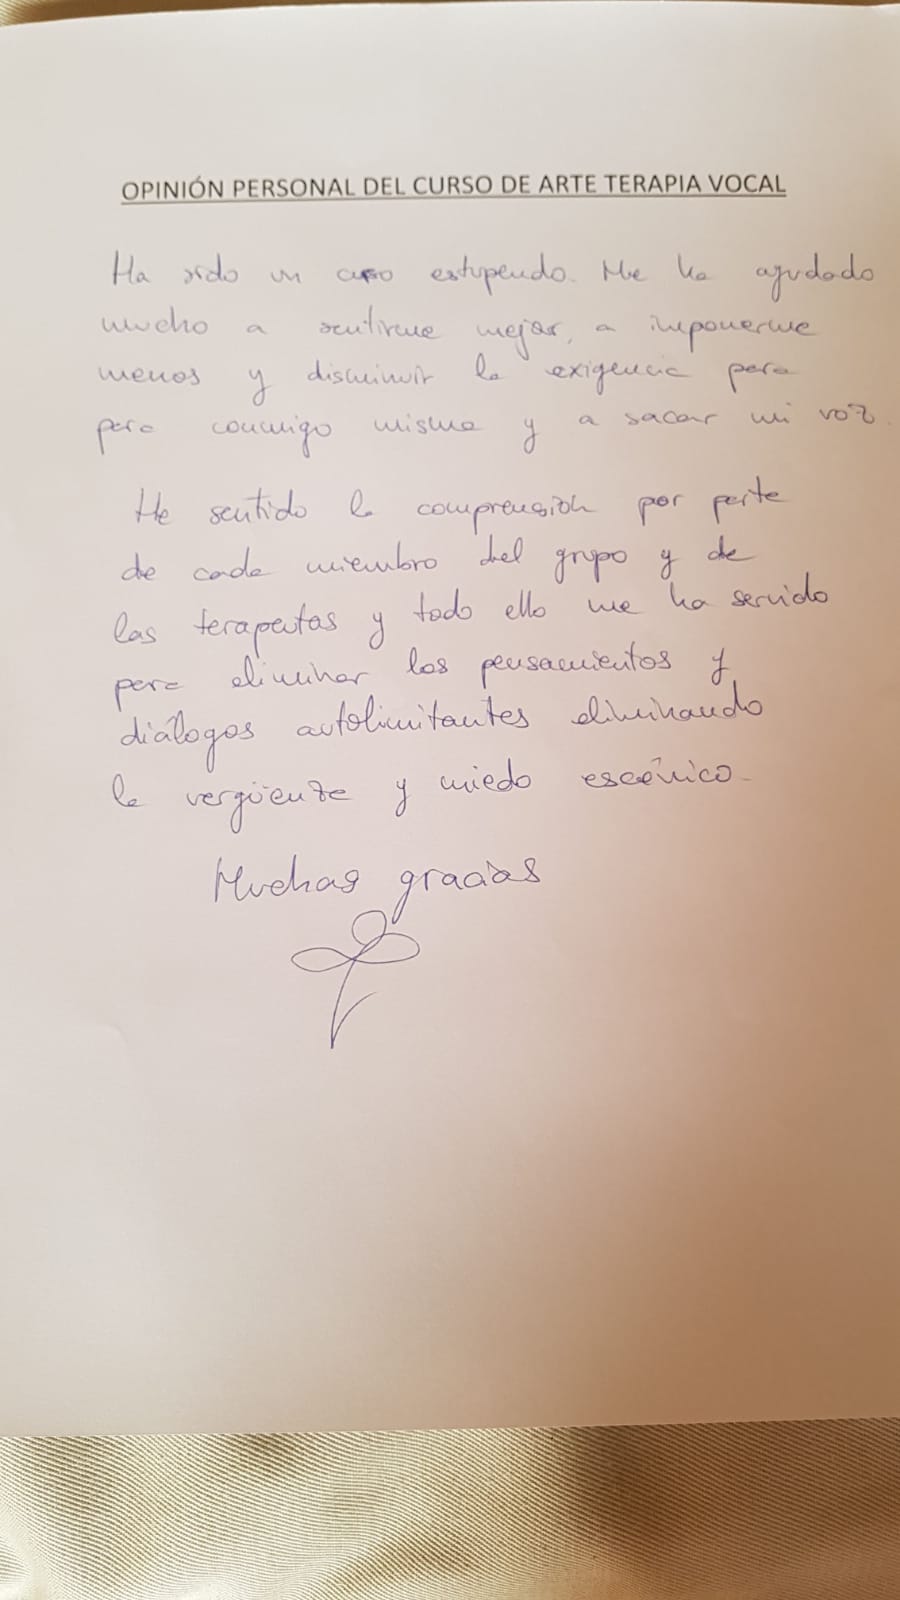 OPINIÓN PERSONAL DEL CURSO DE ARTE TERAPIA VOCAL
Ha sido un curso estupendo. Me ha ayudado
mucho a sentirme mejor, a imponerme
menos y disminuir la exigencia para
para conmigo misma y a sacar mi voz.
He sentido la comprensión por parte
de cada miembro del grupo y de
las terapeutas y todo ello me ha servido
para eliminar los pensamientos y
diálogos autolimitantes eliminando
la vergüenza y miedo escénico.
Muchas gracias